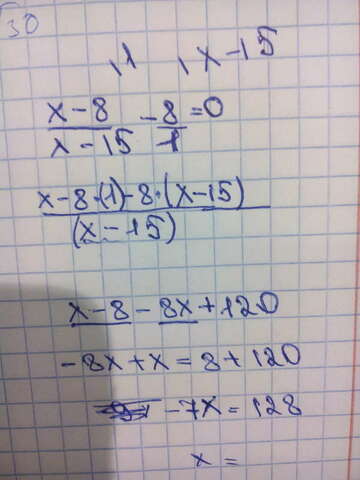 30
\1 \x-15
x-8/x-15 - 8/1 = 0
x-8·(1)-8·(x-15)/(x-15)
x-8-8x+120
-8x+x=8+120
-7x=128
x=